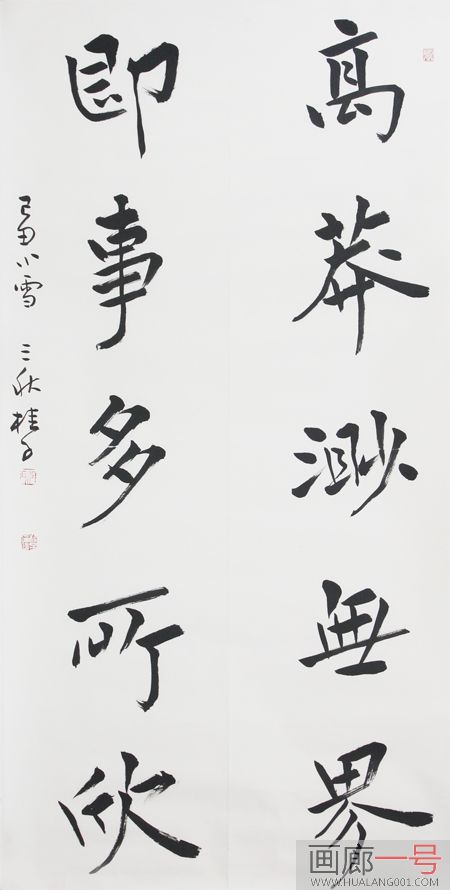 高莽渺無界
即事多所欣
己丑小雪 三秋桂子
画廊一号
WWW.HUALANG001.COM